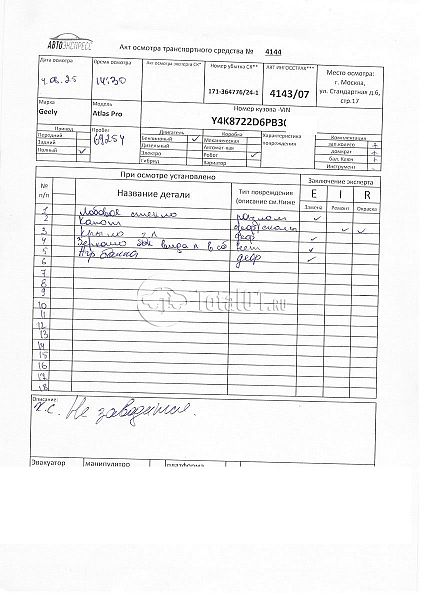 АВТОЭКСПРЕСС
Акт осмотра транспортного средства № 4144
Дата осмотра Время осмотра Акт осмотра эксперта СК* Номер убытка СК** АКТ ИНГОССТРАХ*** Место осмотра:
14:30 171-364776/24-1 4143/07 г. Москва,
ул. Стандартная д.6,
стр.17
Марка Модель Номер кузова -VIN
Geely Atlas Pro Y4K8722D6PB3(
Привод Пробег Двигатель Коробка Характеристика повреждения Комплектация
Передний 69254 Бензиновый ✓ Механическая зап.колесо +
Задний Дизельный Автомат кая домкрат +
Полный ✓ Электро Робот ✓ бал. Ключ +
Гибрид Вариатор Инструмент -
При осмотре установлено Заключение эксперта
№ п/п Название детали Тип повреждения (описание см.Ниже E I R
Замена Ремонт Окраска
1 Лобовое стекло разлом ✓
2 Капот
3 Крыло
4 Зеркало вида
5
6
7
8
9
10
11
12
13
14
15
16
17
18
Описание:
т.с. Не заводится.
Эвакуатор манипулятор платформа
TotalOT.RU